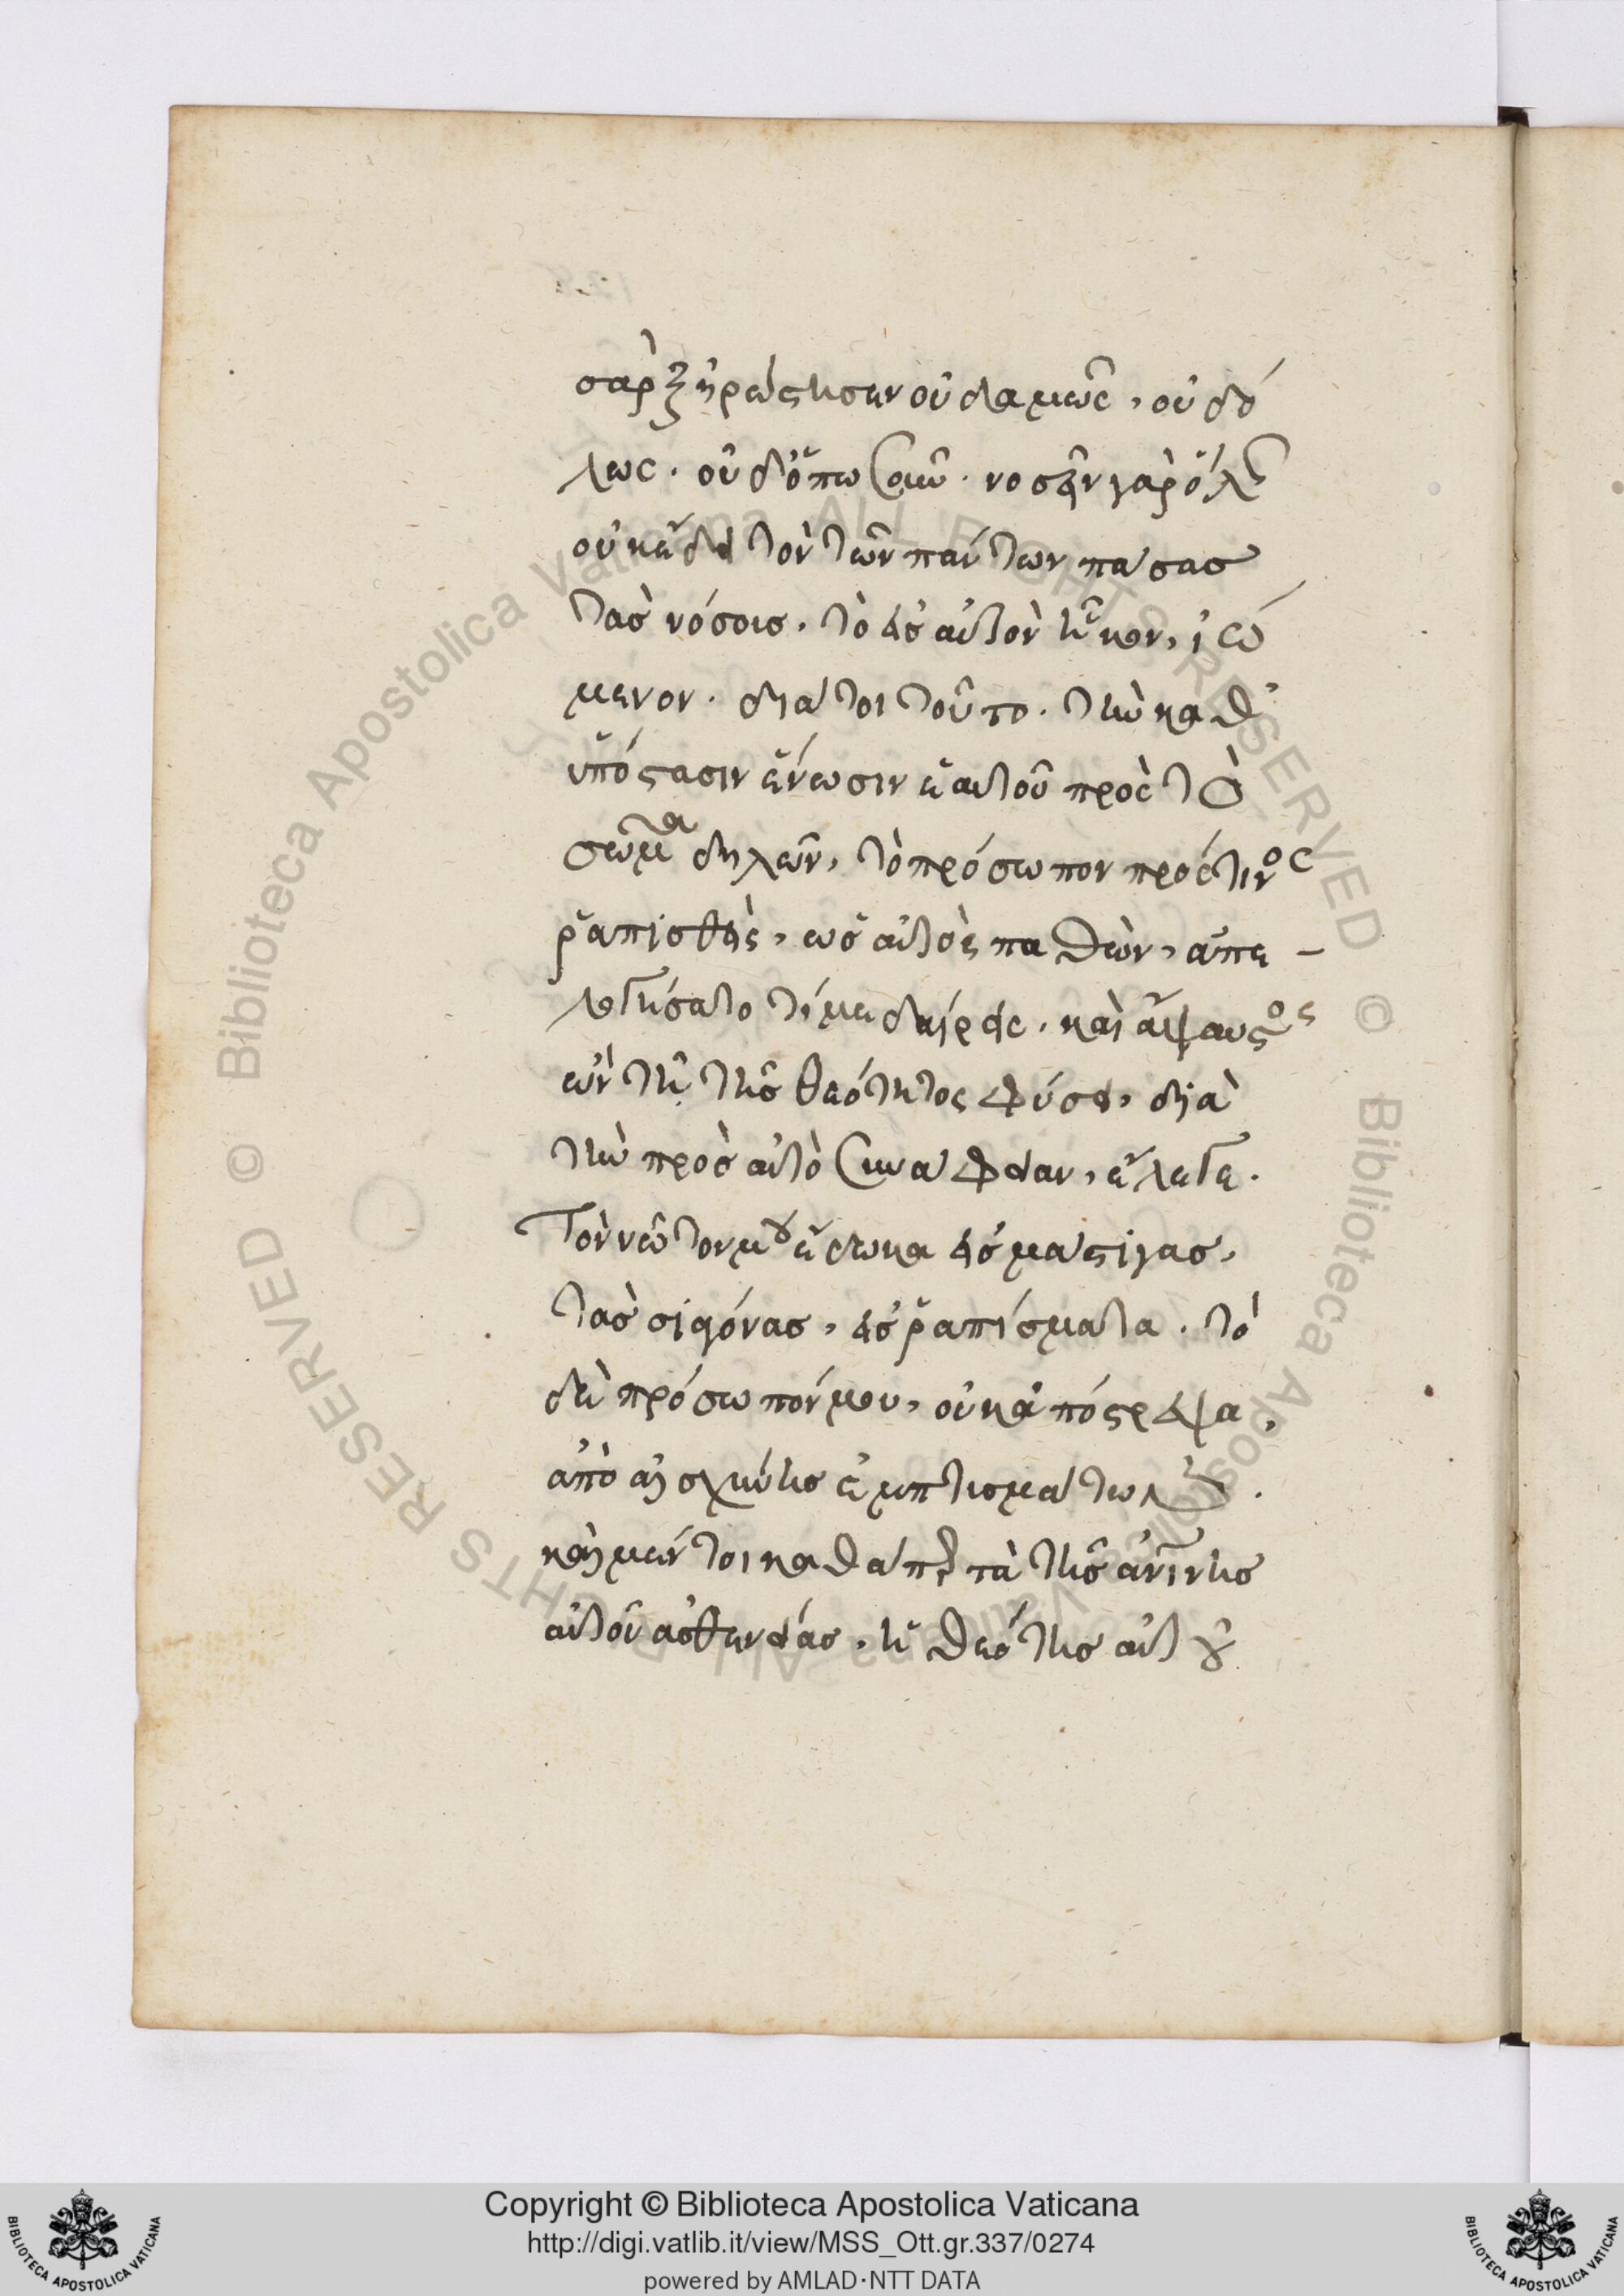 σὰρξ ἠρώστησεν οὐδαμῶς, οὐδό
λως. οὐδ' ὁπωσοῦν. νοσεῖν γὰρ ὅλως
οὐκ ἔδει τὸν τῶν πάντων πάσας
τὰς νόσους. τὸ εἰς αὐτὸν ἧκον, ἰώ
μενον. διά τοι τοῦτο. τὴν καθ'
ὑπόστασιν ἕνωσιν ἑαυτοῦ πρὸς τὸ
σῶμα δηλῶν, τὸ πρόσωπον πρός τινος
ῥαπισθεὶς, ὡς αὐτὸς παθὼν, ἀπε-
λογήσατο τί με δαίρεις. καὶ ἄψαυστος
ὢν τῇ τῆς θεότητος φύσει, διὰ
τὴν πρὸς αὐτὸ συνάφειαν, ἔλεγε.
Τὸν νῶτόν μου ἔδωκα εἰς μάστιγας,
τὰς σιαγόνας, εἰς ῥαπίσματα. τὸ
δὲ πρόσωπόν μου, οὐκ ἀπέστρεψα,
ἀπὸ αἰσχύνης ἐμπτυσμάτων.
καὶ μέν τοι καθάπερ τὰ τῆς ἀνίνης
αὐτοῦ ἀσθενείας, ἡ θεότης αὐτοῦ